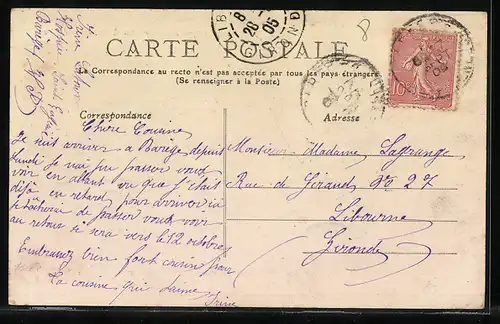 CARTE POSTALE
La Correspondance au recto n'est pas acceptée par tous les pays étrangers
(Se renseigner à la Poste)
Correspondance
Adresse
8
8
28 - 9
05
10
Chère Cousine
Je suis arriver a Barège depuis
lundi Je nai pu passer vous
voir en allant vu que j'était
déjà en retard pour arriver ici
je tacherai de passer vous voir
au retour ce sera vers le 12 octobre
Embrassez bien fort cousin pour
La cousine qui t'aime
Irène
Monsieur Madame Lagrange
Rue de Géraud No 27
Libourne
Gironde
Irène
Hospice Sainte Eugénie
Barège H P